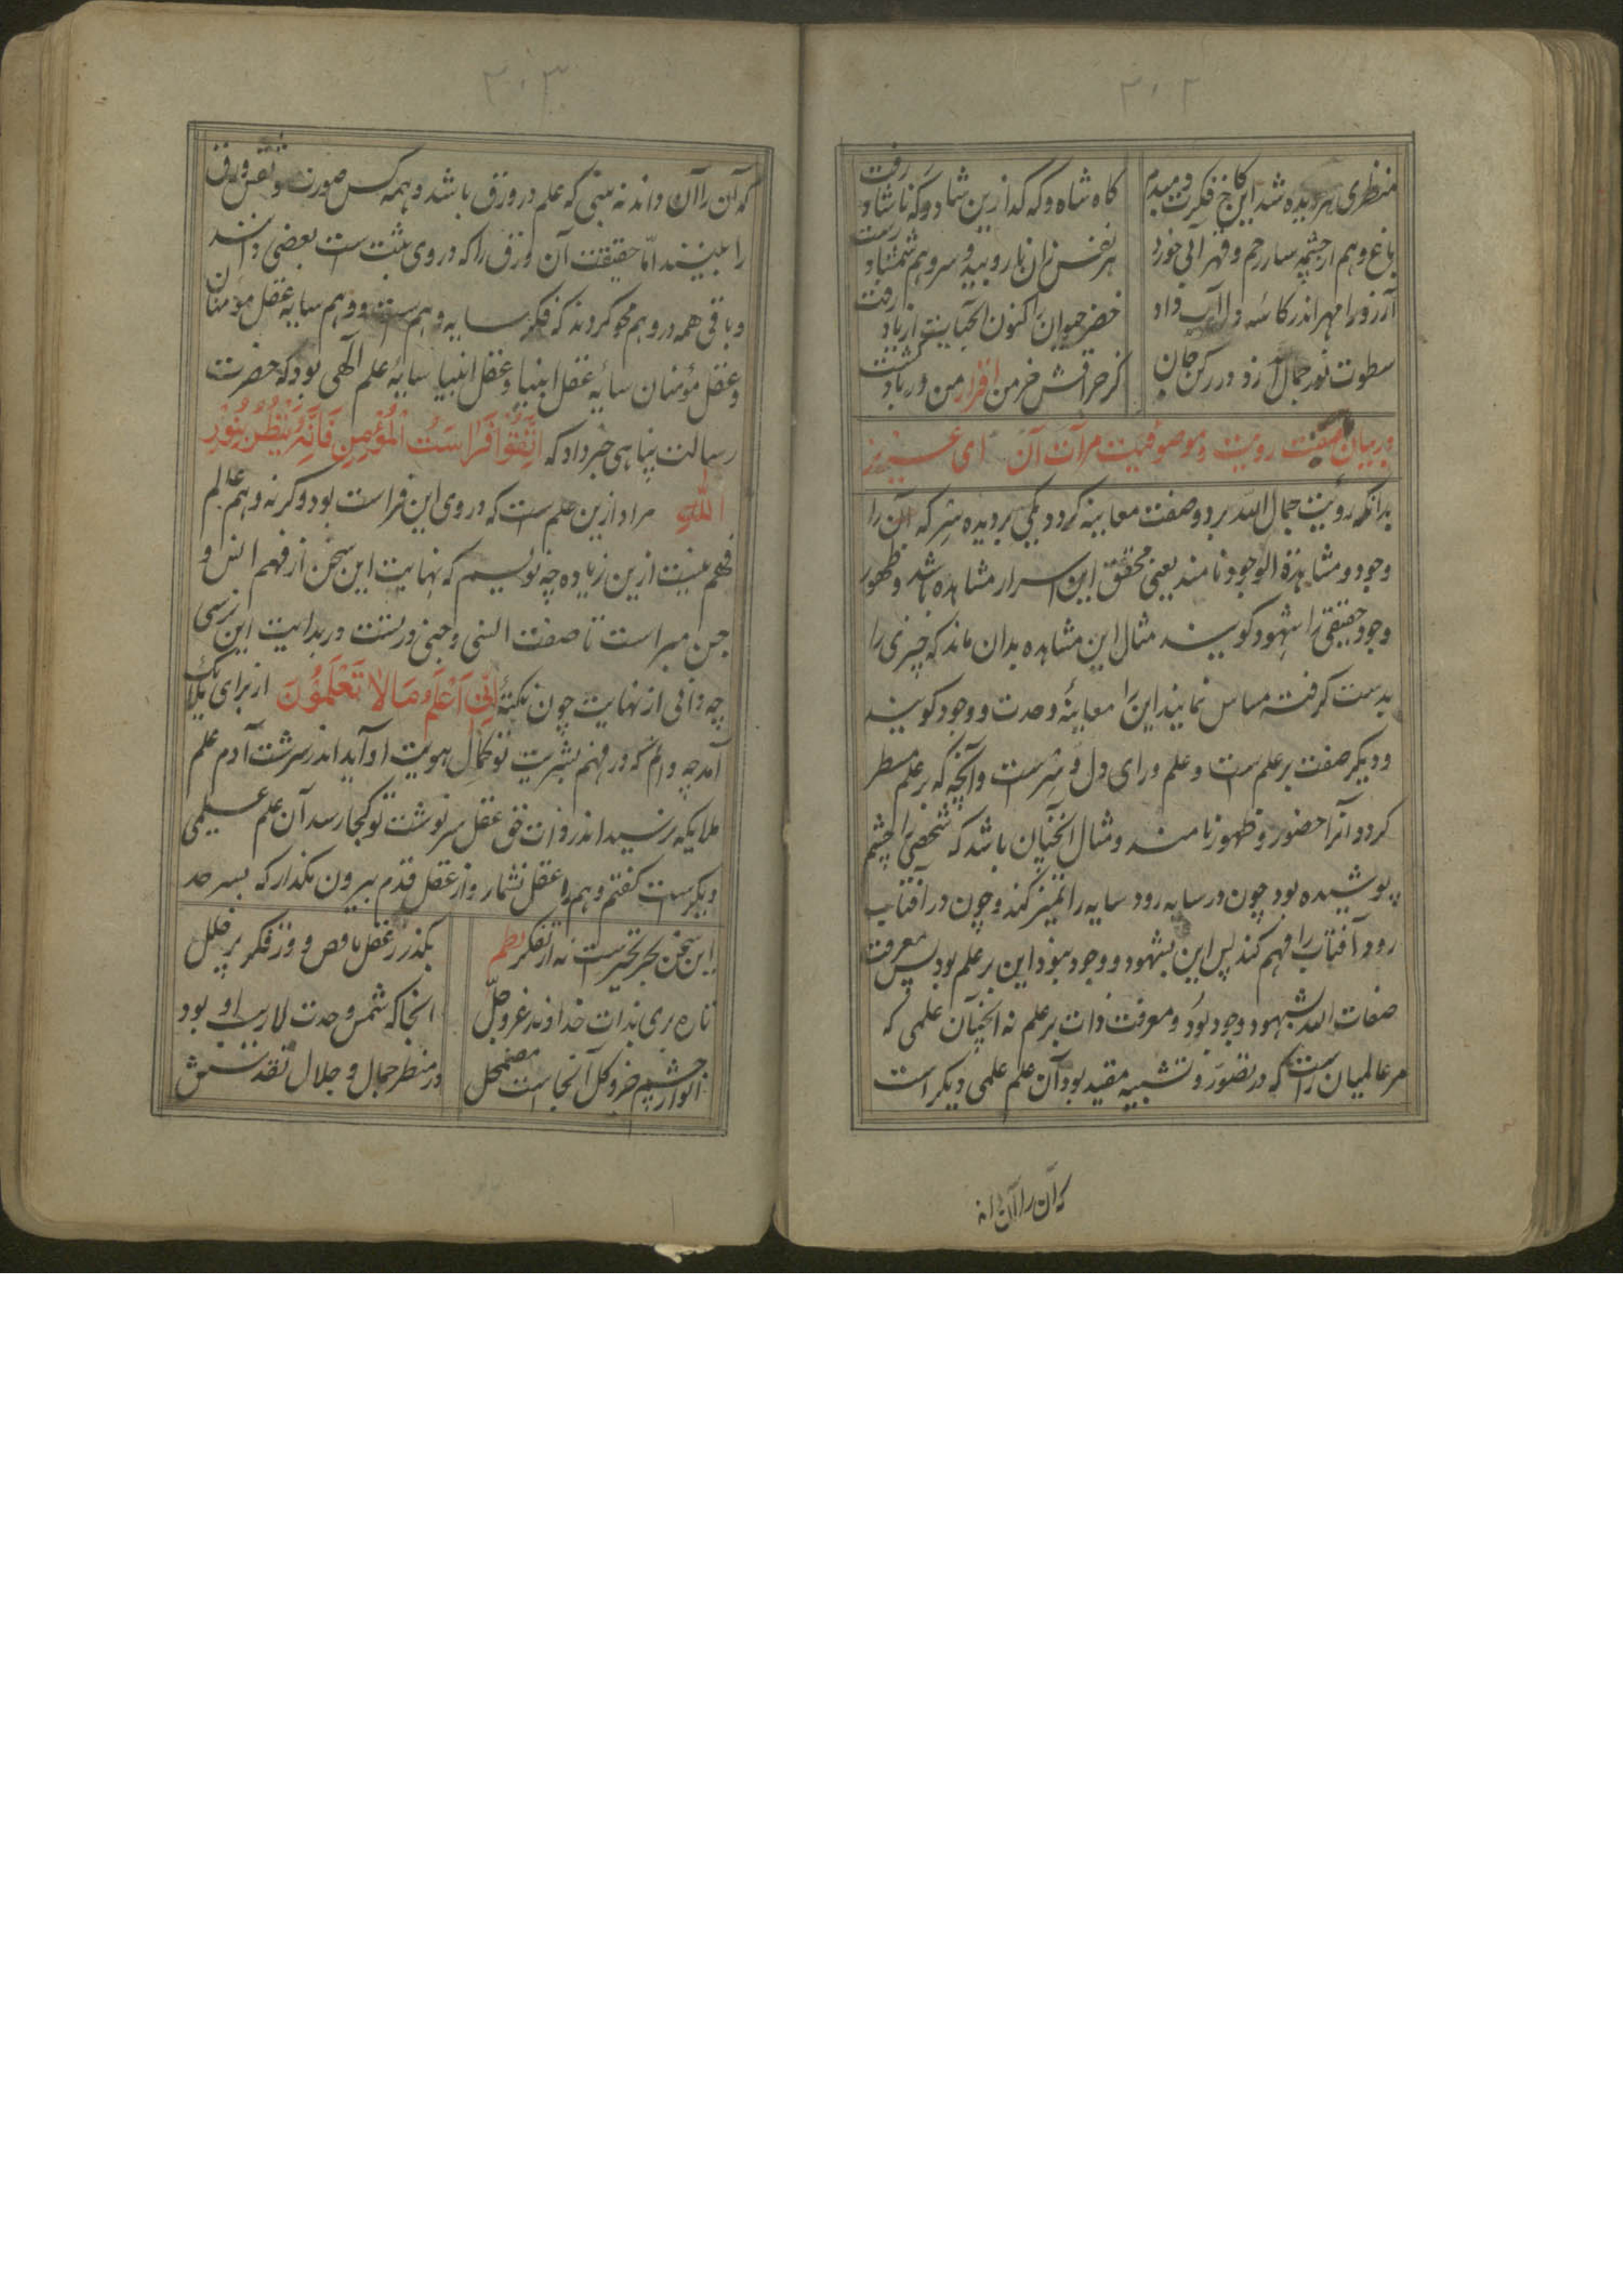 ۲۰۲
منظری هر دیده شد این کاخ فکرت دمبدم
کاه شاه و که کدا زین شاد و که ناشاد رفت
باغ وهم از چشمه سار رحم و قهر آبی خورد
هر نفس زان نار روبید و سرو هم شمشاد رست
آرزو را مهر اندر کاسهٔ دل آب داد
خضر حیوان اکنون
سطوت نور جمال آرزو در رکن جان
کر حراقش خرمن اقرار من بر باد کشت
در بیان صفت رویت و موصوفیت مرآت آن ای عزیز
بدانکه رؤیت جمال الله بر دو صفت معاینه کردد یکی بر دیده سر که آن را
وجود و مشاهدة الوجود نامند یعنی محقق این اسرار مشاهده باشد و ظهور
وجود حقیقی را شهود کویند مثال این مشاهده بدان ماند که چیزی را
بدست کرفته مساس نمایند این را معاینهٔ وحدت و وجود کویند
و دیکر صفت بر علم ست و علم ورای دل و سرست و آنچه که بر علم مسطر
کردد آنرا حضور و ظهور نامند و مثال آنچنان باشد که شخصی را چشم
پوشیده بود چون در سایه رود سایه را تمیز کند و چون در آفتاب
رود آفتاب را فهم کند پس این بشهود و وجود نبود این بر علم بود پس معرفت
صفات الله بشهود وجود بود و معرفت ذات بر علم نه آنچنان علمی که
مر عالمیان راست که در تصور و تشبیه مقید بود آن علم علمی دیکر است
که آن را آن داند
۲۰۳
که آن را آن داند نه بینی که علم در ورق باشد و همه کس صورت و نقش ورق
را بینند امّا حقیقت آن ورق را که در وی مثبت ست بعضی دانند
و باقی همه در وهم محو کردند که فکر سایه وهم ست و وهم سایه عقل مؤمنان
و عقل مؤمنان سایه عقل انبیا و عقل انبیا سایهٔ علم الهی بود که حضرت
رسالت پناهی خبر داد که اتَّقُوا فَرَاسَتُ الْمُؤْمِنِ فَاِنَّهُ يَنْظُرُ بِنُوْرِ
اللهِ مراد ازین علم ست که در وی این فراست بود و کرنه وهم عالم
فهم نیست ازین زیاده چه نویسم که نهایت این سخن از فهم انس و
جن مبراست تا صفت انسی و جنی درتست در بدایت این نرسی
چه دانی از نهایت چون نکتهٔ اِنِّي اَعْلَمُ مَالَا تَعْلَمُوْنَ از برای ملایک
آمد چه دانم که در فهم بشریت تو کمال هویت او آید اندر سرشت آدم علم
ملایکه نرسید اندر ذات حق عقل سرنوشت تو کجا رسد آن علم علیمی
دیکرست کفتم وهم را عقل نشمار و از عقل قدم بیرون بکذار که بسر حد
این سخن بحر تحیرست نه از تفکر نظم
بکذر ز عقل ناقص و وز فکر پر خلل
تا ره بری بذات خداوند عزوجلّ
آنجا که شمس وحدت لاریب او بود
انوار چشم جزو کل آنجاست مضمحل
در منظر جمال و جلال تقدسش